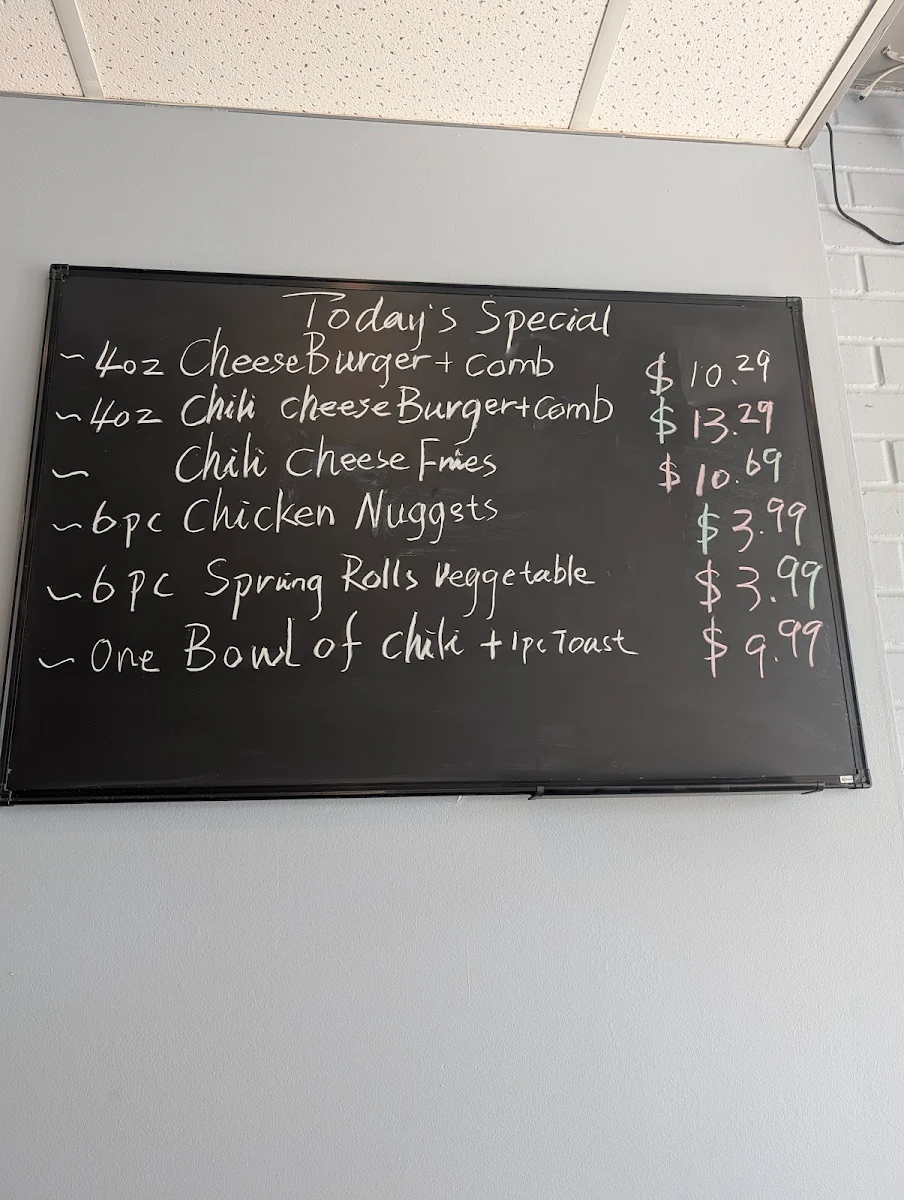 Today's Special
~ 4oz CheeseBurger + Comb $10.29
~ 4oz Chili cheeseBurger + Comb $13.29
~ Chili Cheese Fries $10.69
~ 6pc Chicken Nuggets $3.99
~ 6 PC Spring Rolls Veggetable $3.99
~ One Bowl of Chili + 1pc Toast $9.99